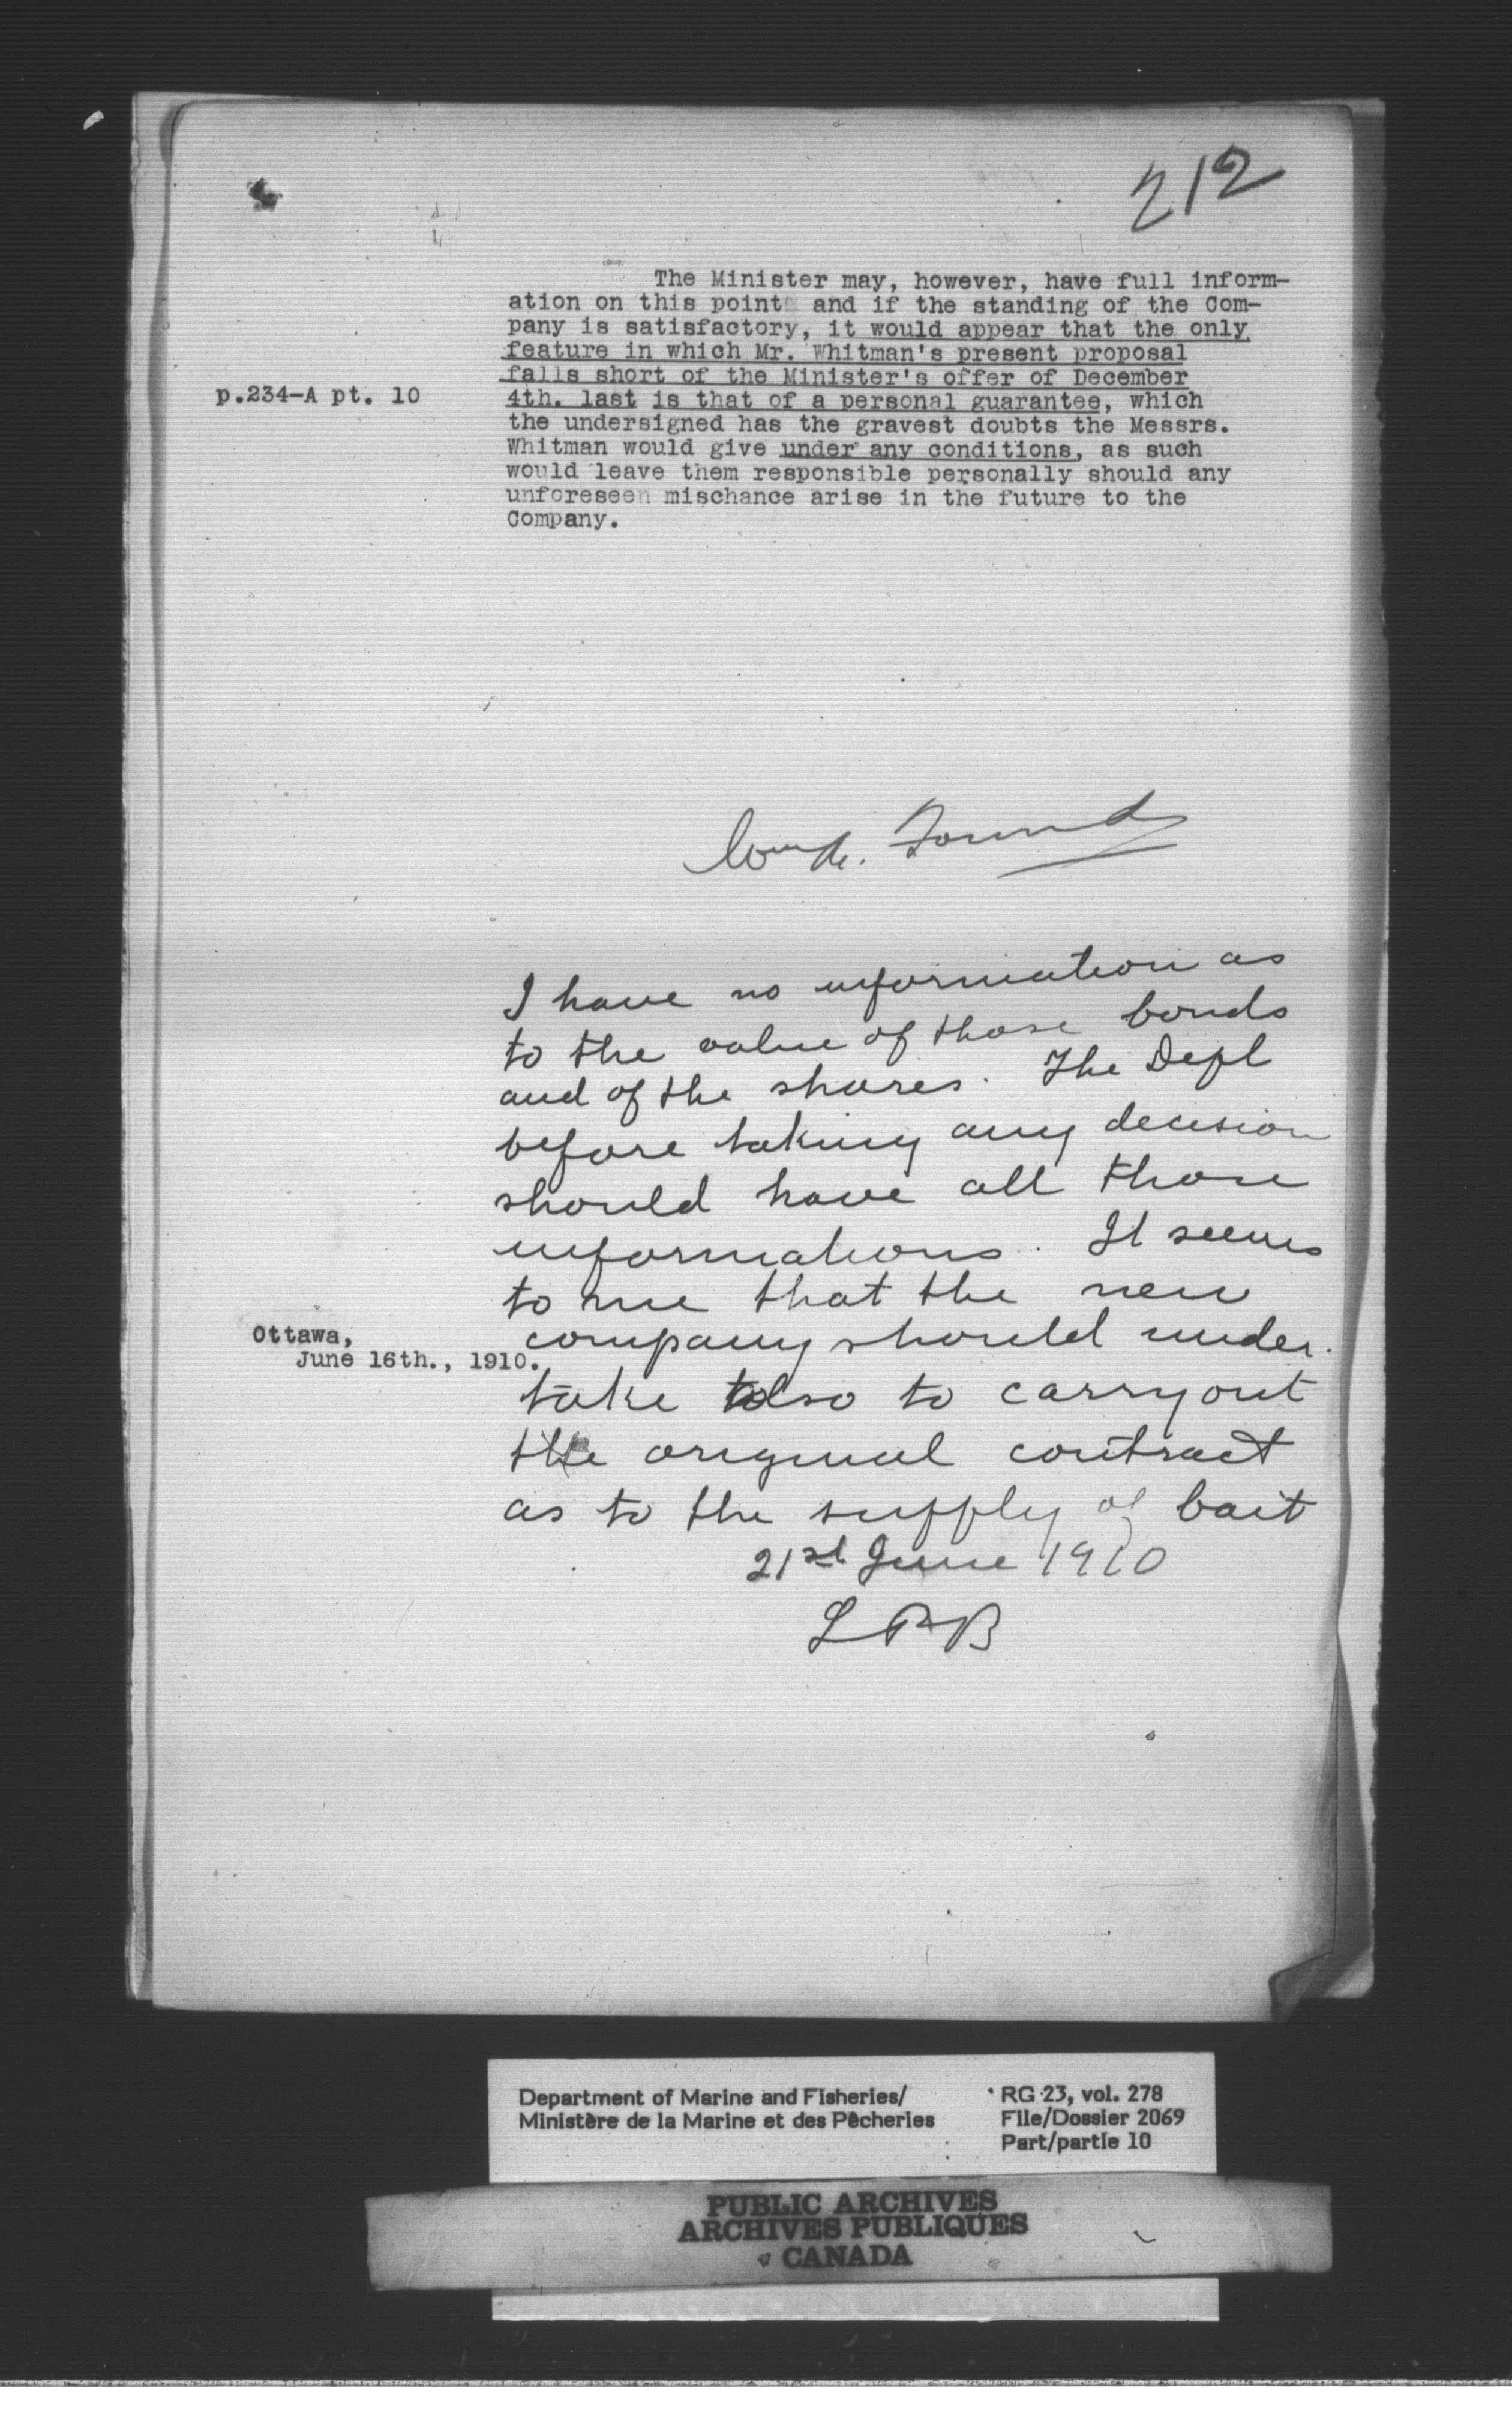 212
The Minister may, however, have full inform-
ation on this point and if the standing of the Com-
pany is satisfactory, it would appear that the only
feature in which Mr. Whitman's present proposal
falls short of the Minister's offer of December
p.234-A pt. 10
4th. last is that of a personal guarantee, which
the undersigned has the gravest doubts the Messrs.
Whitman would give under any conditions, as such
would leave them responsible personally should any
unforeseen mischance arise in the future to the
Company.
Wm A. Found
I have no information as
to the value of those bonds
and of the shares. The Dept
before taking any decision
should have all those
informations. It seems
to me that the new
company should under
take also to carry out
the original contract
as to the supply of bait
21st June 1910
LPB
Ottawa,
June 16th., 1910.
Department of Marine and Fisheries/
Ministère de la Marine et des Pêcheries
RG 23, vol. 278
File/Dossier 2069
Part/partie 10
PUBLIC ARCHIVES
ARCHIVES PUBLIQUES
CANADA